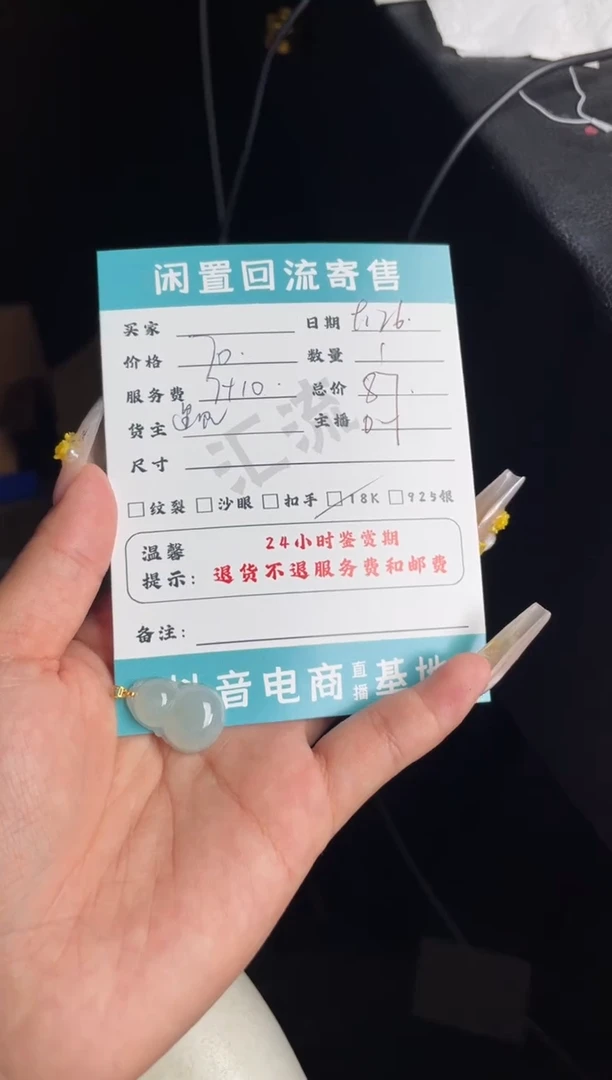 闲置回流寄售
买家 日期 9.26.
价格 70. 数量 1
服务费 7+10. 总价 87.
货主 主播
尺寸
汇流
□纹裂 □沙眼 □扣手 □18K □925银
温馨提示: 24小时鉴赏期
退货不退服务费和邮费
备注:
抖音电商直播基地